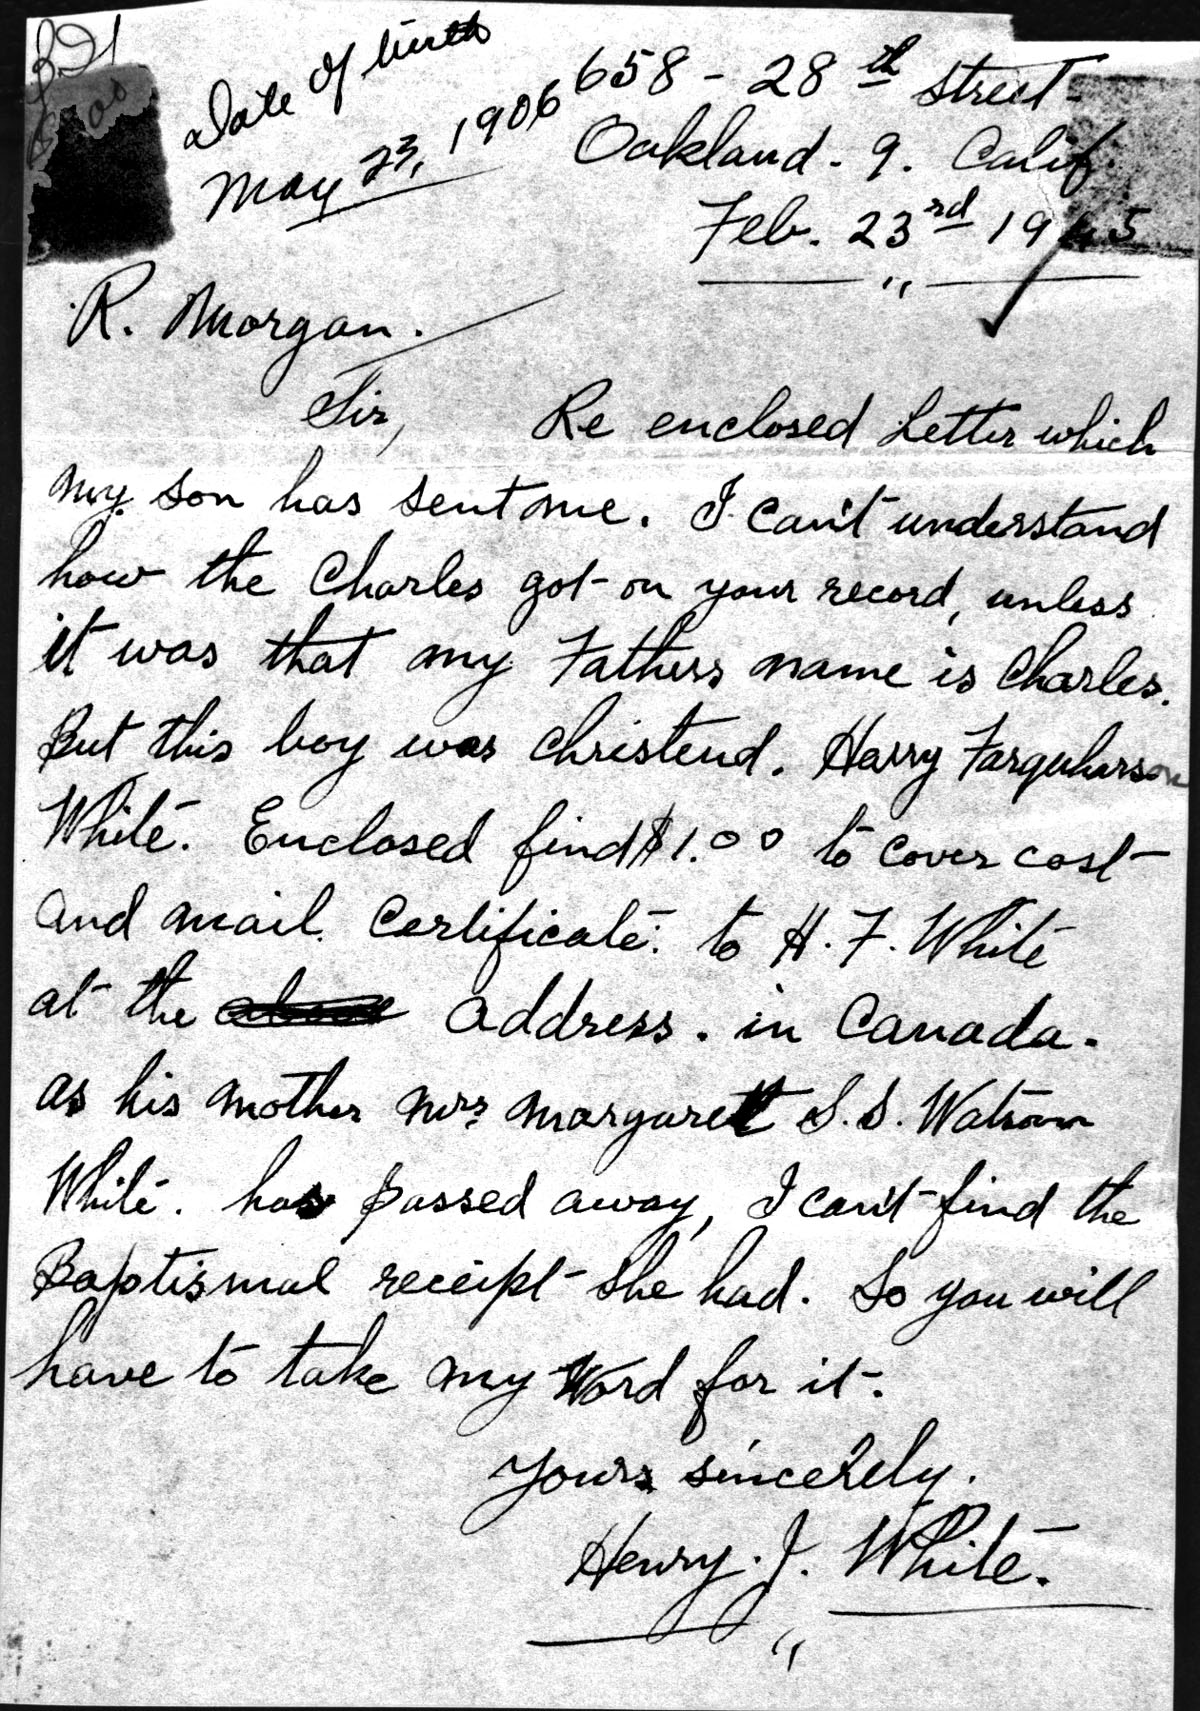 Date of birth
May 23, 1906
658 - 28th Street-
Oakland - 9. Calif.
Feb. 23rd 1945
R. Morgan.
Sir, Re enclosed Letter which
my son has sent me. I can't understand
how the Charles got on your record, unless
it was that my Fathers name is Charles.
But this boy was christend. Harry Farquharson
White. Enclosed find $1.00 to cover cost
and mail. Certificate. to H. F. White
at the address. in Canada.
as his mother Mrs Margaret S. S. Watson
White. has passed away, I can't find the
Baptismal receipt she had. So you will
have to take my Word for it.
Yours sincerely.
Henry. J. White.